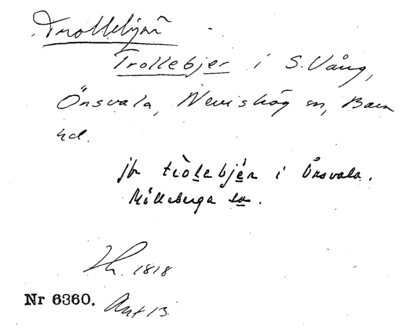 Trollebjär
Trollebjer i S. Vång,
Önsvala, Nevishög sn, Bara
hd.
jfr tròlebjèr i Önsvala.
Mölleberga sn.
Th. 1818
Nr 6360. Ant 13